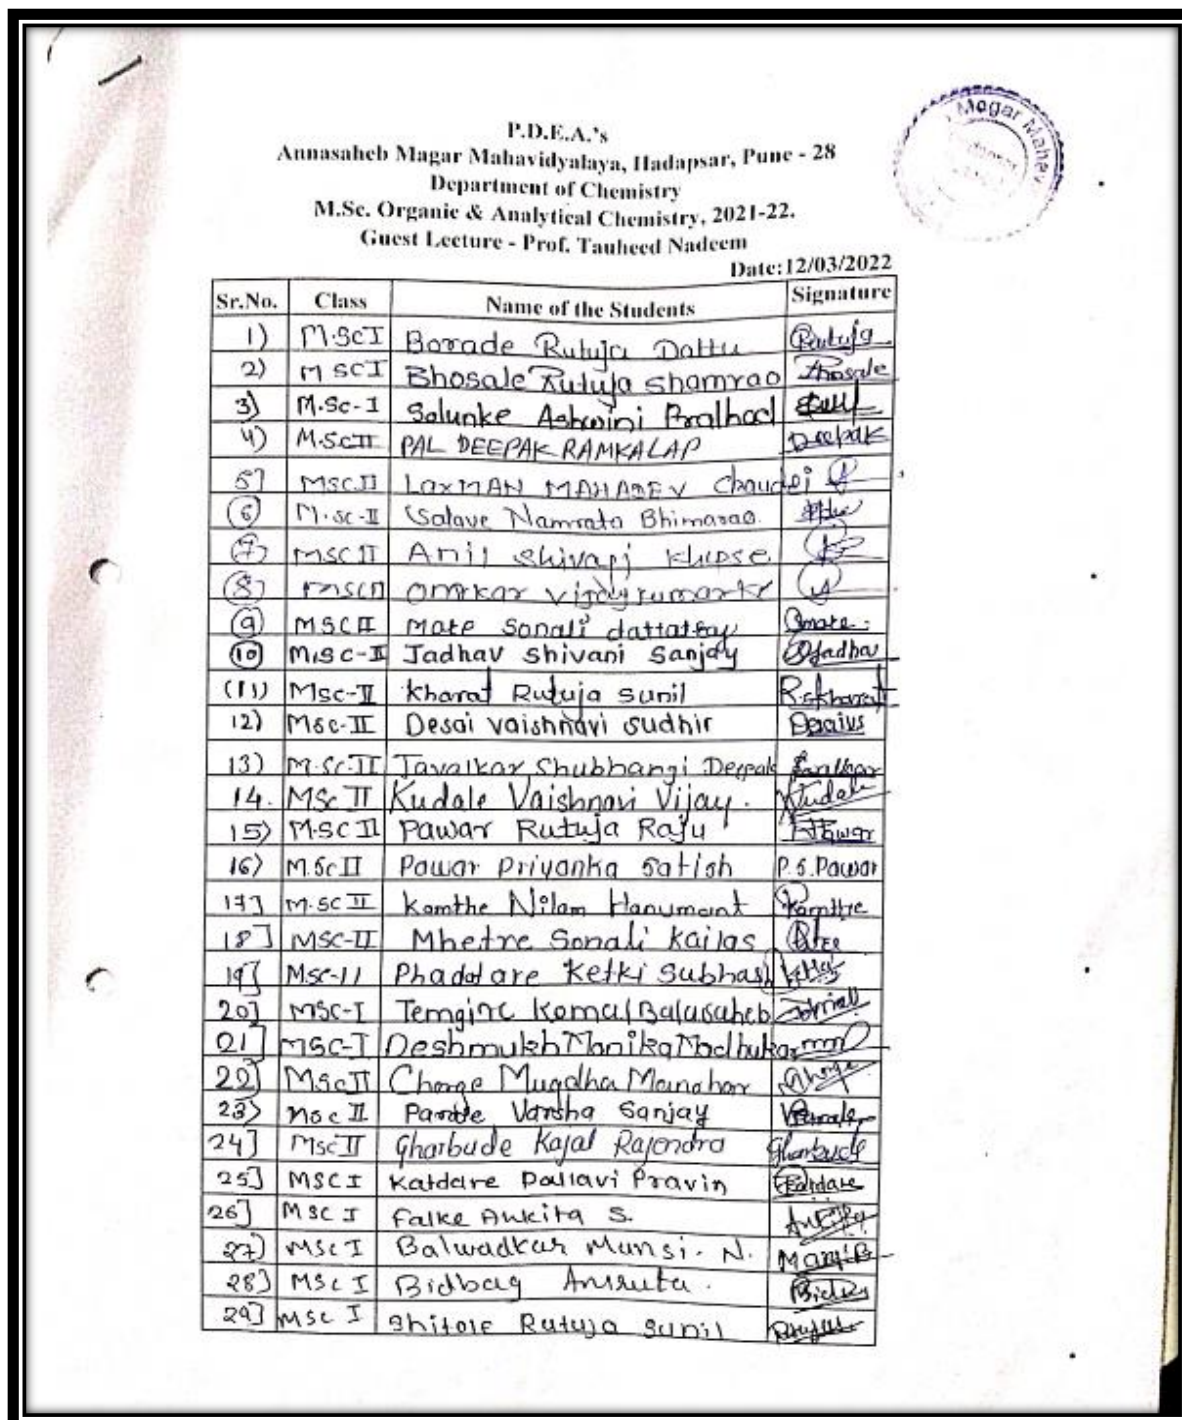 Magar Mahav
P.D.E.A.'s
Annasaheb Magar Mahavidyalaya, Hadapsar, Pune - 28
Department of Chemistry
M.Sc. Organic & Analytical Chemistry, 2021-22.
Guest Lecture - Prof. Tauheed Nadeem
Date:12/03/2022
Sr.No. Class Name of the Students Signature
1) M.SC I Borade Rutuja Dattu Rutuja
2) M SC I Bhosale Rutuja Shamrao Bhosale
3) M.Sc-I Salunke Ashwini Pralhad
4) M.Sc II PAL DEEPAK RAMKALAP Deepak
5] MSC II LaxMAN MAHADEV
6) M.sc-II Salave Namrata Bhimarao.
7) MSC II Anil Shivaji
8) MSC II omkar
9) MSC II Mate Sonali dattatray Smate.
10) M.SC-II Jadhav Shivani Sanjay SJadhav
(11) Msc-II Kharat Rutuja Sunil R.S.Kharat
12) Msc-II Desai Vaishnavi Sudhir Desaivs
13) M.Sc.II Javalkar Shubhangi Deepak
14. MSc II Kudale Vaishnavi Vijay. Kudale
15) M.SC II Pawar Rutuja Raju Pawar
16) M.Sc II Pawar Priyanka Satish P.S.Pawar
17] M.SC II Kamthe Nilam Hanumant Kamthe
18] MSC-II Mhetre Sonali Kailas
19] M.sc-II Phadatare Ketki Subhash
20] MSC-I Temgire Komal Balasaheb
21] MSC-I Deshmukh Monika Madhukar
22] MSc II Ghorge Mugdha Manohar
23) Msc II Varsha Sanjay
24] MSc II Gharbude Kajal Rajendra Gharbude
25] MSC I Katdare Pallavi Pravin Katdare
26] MSC I Falke Ankita S. Ankita
27) MSC I Balwadkar Mansi. N.
28] MSC I Bidbag Amruta.
29] MSC I Shitole Rutuja Sunil